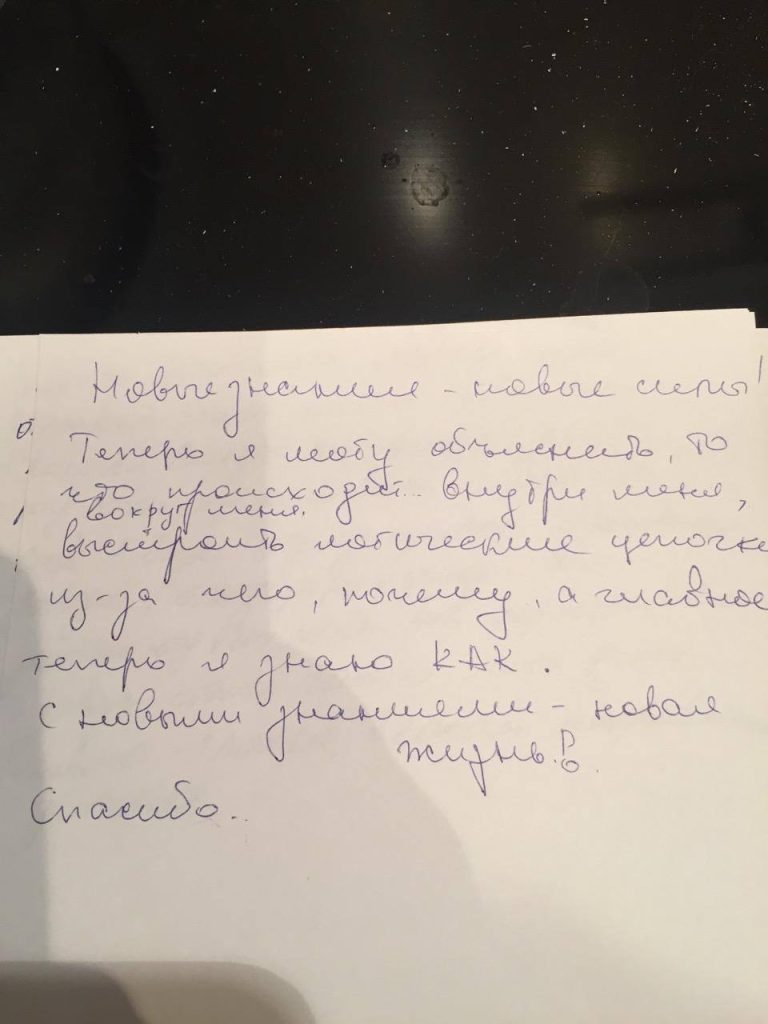 Новые знания - новые силы!
Теперь я могу объяснить, то
что происходит.. внутри меня,
вокруг меня.
выстроить логические цепочки
из-за чего, почему, а главное
теперь я знаю КАК.
С новыми знаниями - новая
жизнь!
Спасибо..